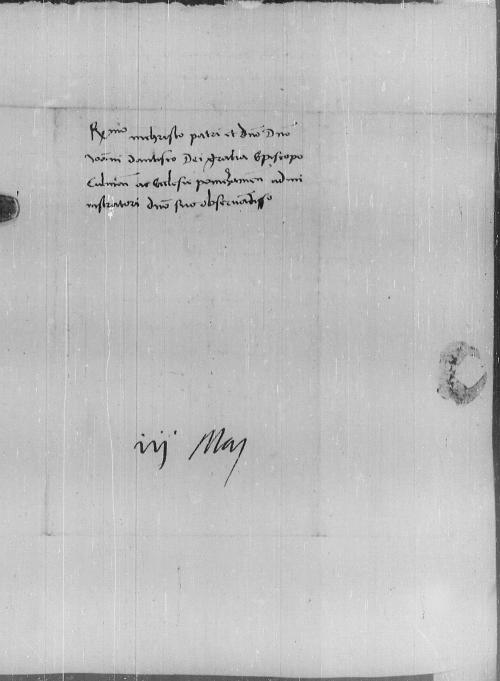 R(x)mo inchristo patri et dno Dno
Joanni dantisco Dei gratia Episcopo
Culmen ac Ecclesie pomezanien admi
nistratori dno suo obseruadisso
iij Maij